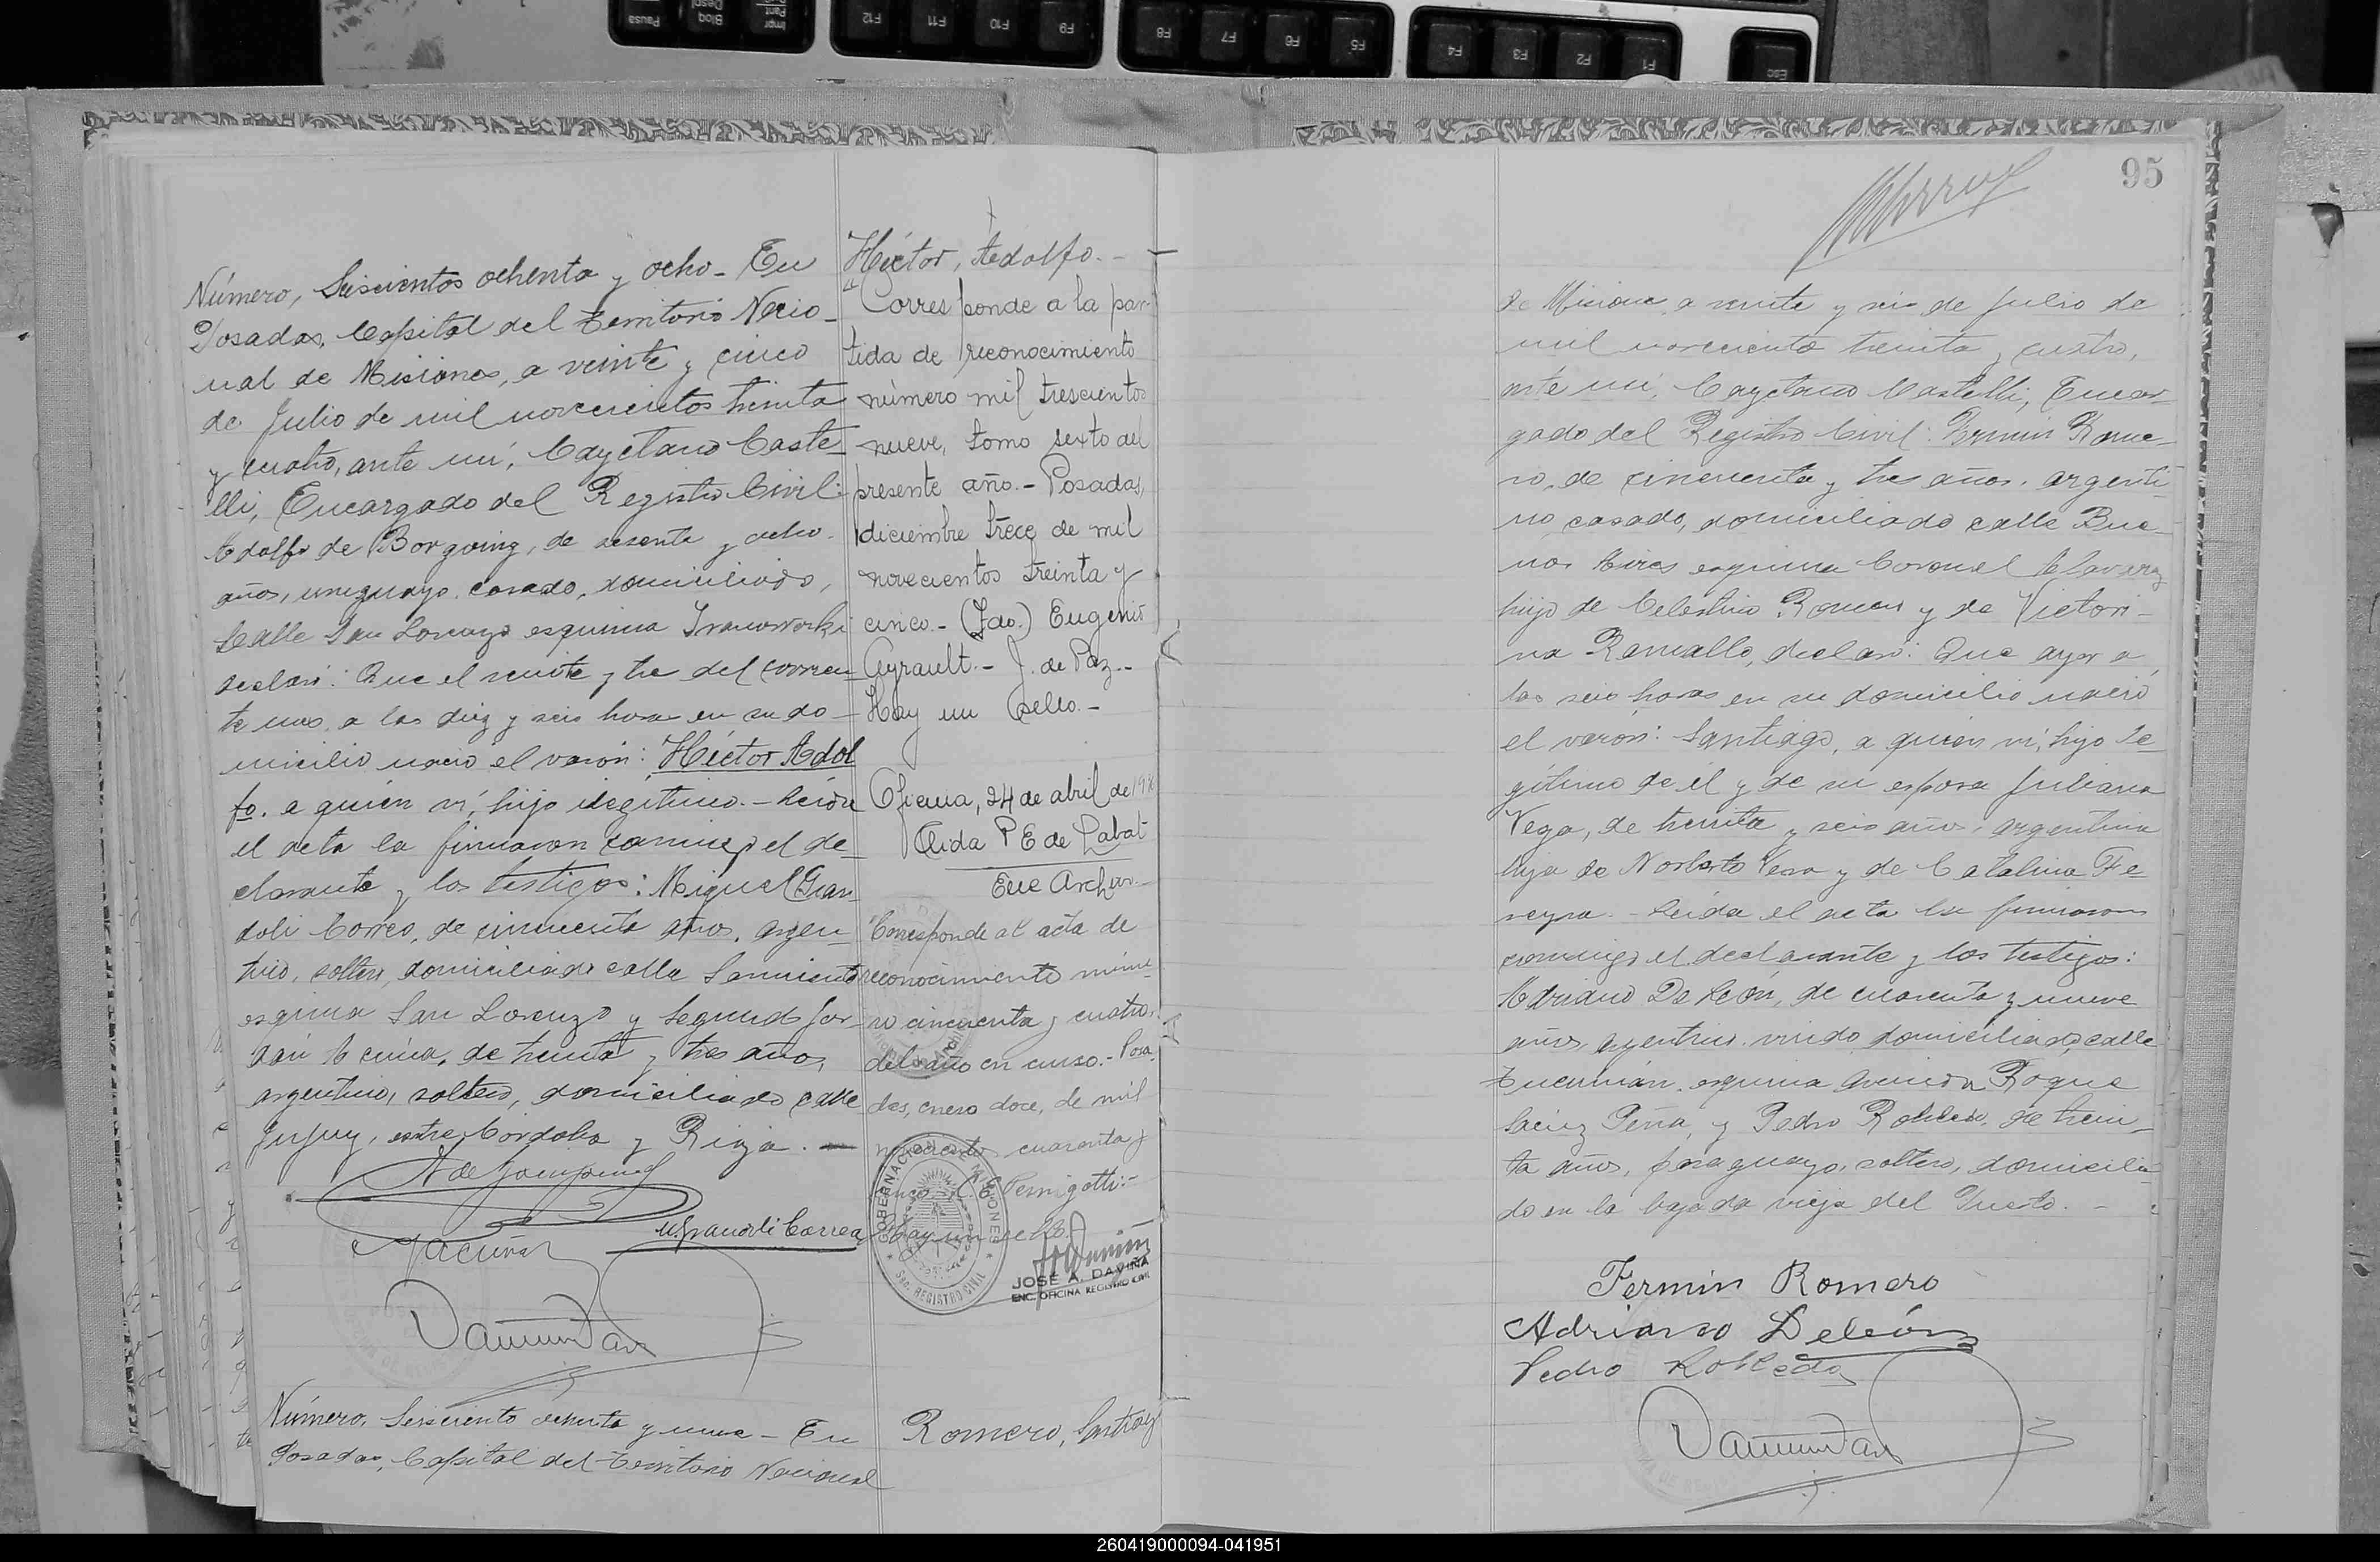 Pausa
Bloq
Despl
Impr
Pant
F12
F11
F10
F9
F8
F7
F6
F5
F4
F3
F2
F1
Esc
Número, Seiscientos ochenta y ocho - En
Posadas, Capital del Territorio Nacio-
nal de Misiones, a veinte y cinco
de Julio de mil novecientos treinta
y cuatro, ante mí, Cayetano Caste
lli, Encargado del Registro Civil:
Adolfo de Bourgoing, de sesenta y ocho
años, uruguayo, casado, domiciliado,
Calle San Lorenzo esquina
declaró: Que el veinte y tres del corrien
te mes, a las diez y seis horas en su do-
micilio nació el varón: Héctor Adol
fo, a quién ví, hijo ilegítimo. - Leída
el acta la firmaron conmigo el de-
clarante y los testigos: Miguel Gran
doli Correa, de cincuenta años, argen-
tino, soltero, domiciliado calle Sarmiento
esquina San Lorenzo y Segundo Jor-
dán Acuña, de treinta y tres años,
argentino, soltero, domiciliado calle
Jujuy, entre Córdoba y Rioja. -
A de Bourgoing
M Grandoli Correa
J Acuña
Héctor, Adolfo. -
"Corresponde a la par-
tida de reconocimiento
número mil trescientos
nueve, tomo sexto del
presente año. - Posadas,
diciembre trece de mil
novecientos treinta y
cinco. - (Fdo.) Eugenio
Ayrault. - J. de Paz. -
Hay un sello. -
Oficina, 24 de abril de
Aida P E de Labat
Enc Archivo
"Corresponde al acta de
reconocimiento núme-
ro cincuenta y cuatro,
del año en curso. - Posa-
das, enero doce, de mil
novecientos cuarenta y
Pernigotti: -
Hay un sello
GOBERNACION DE MISIONES
REGISTRO CIVIL
JOSÉ A. DAVIÑA
ENC. OFICINA REGISTRO CIVIL
Número, Seiscientos ochenta y nueve - En
Posadas, Capital del Territorio Nacional
Romero, Santiago
95
de Misiones, a veinte y seis de Julio de
mil novecientos treinta y cuatro,
ante mí, Cayetano Castelli, Encar-
gado del Registro Civil: Fermín Rome-
ro, de cincuenta y tres años, argenti-
no, casado, domiciliado calle Bue-
nos Aires esquina Coronel Alvarez
hijo de Celestino Romero y de Victori-
na Ramallo, declaró: Que ayer a
las seis horas en su domicilio nació
el varón: Santiago, a quién ví, hijo le
gítimo de él y de su esposa Juliana
Vega, de treinta y seis años, argentina
hija de Norberto Vega y de Catalina Fe
reyra. - Leída el acta la firmaron
conmigo el declarante y los testigos:
Adriano De León, de cuarenta y nueve
años, argentino, viudo domiciliado, calle
Tucumán esquina Avenida Roque
Sáenz Peña, y Pedro Robledo, de trein-
ta años, paraguayo, soltero, domicilia
do en la bajada vieja del Puerto. -
Fermin Romero
Adriano Deleón
Pedro Robledo
260419000094-041951